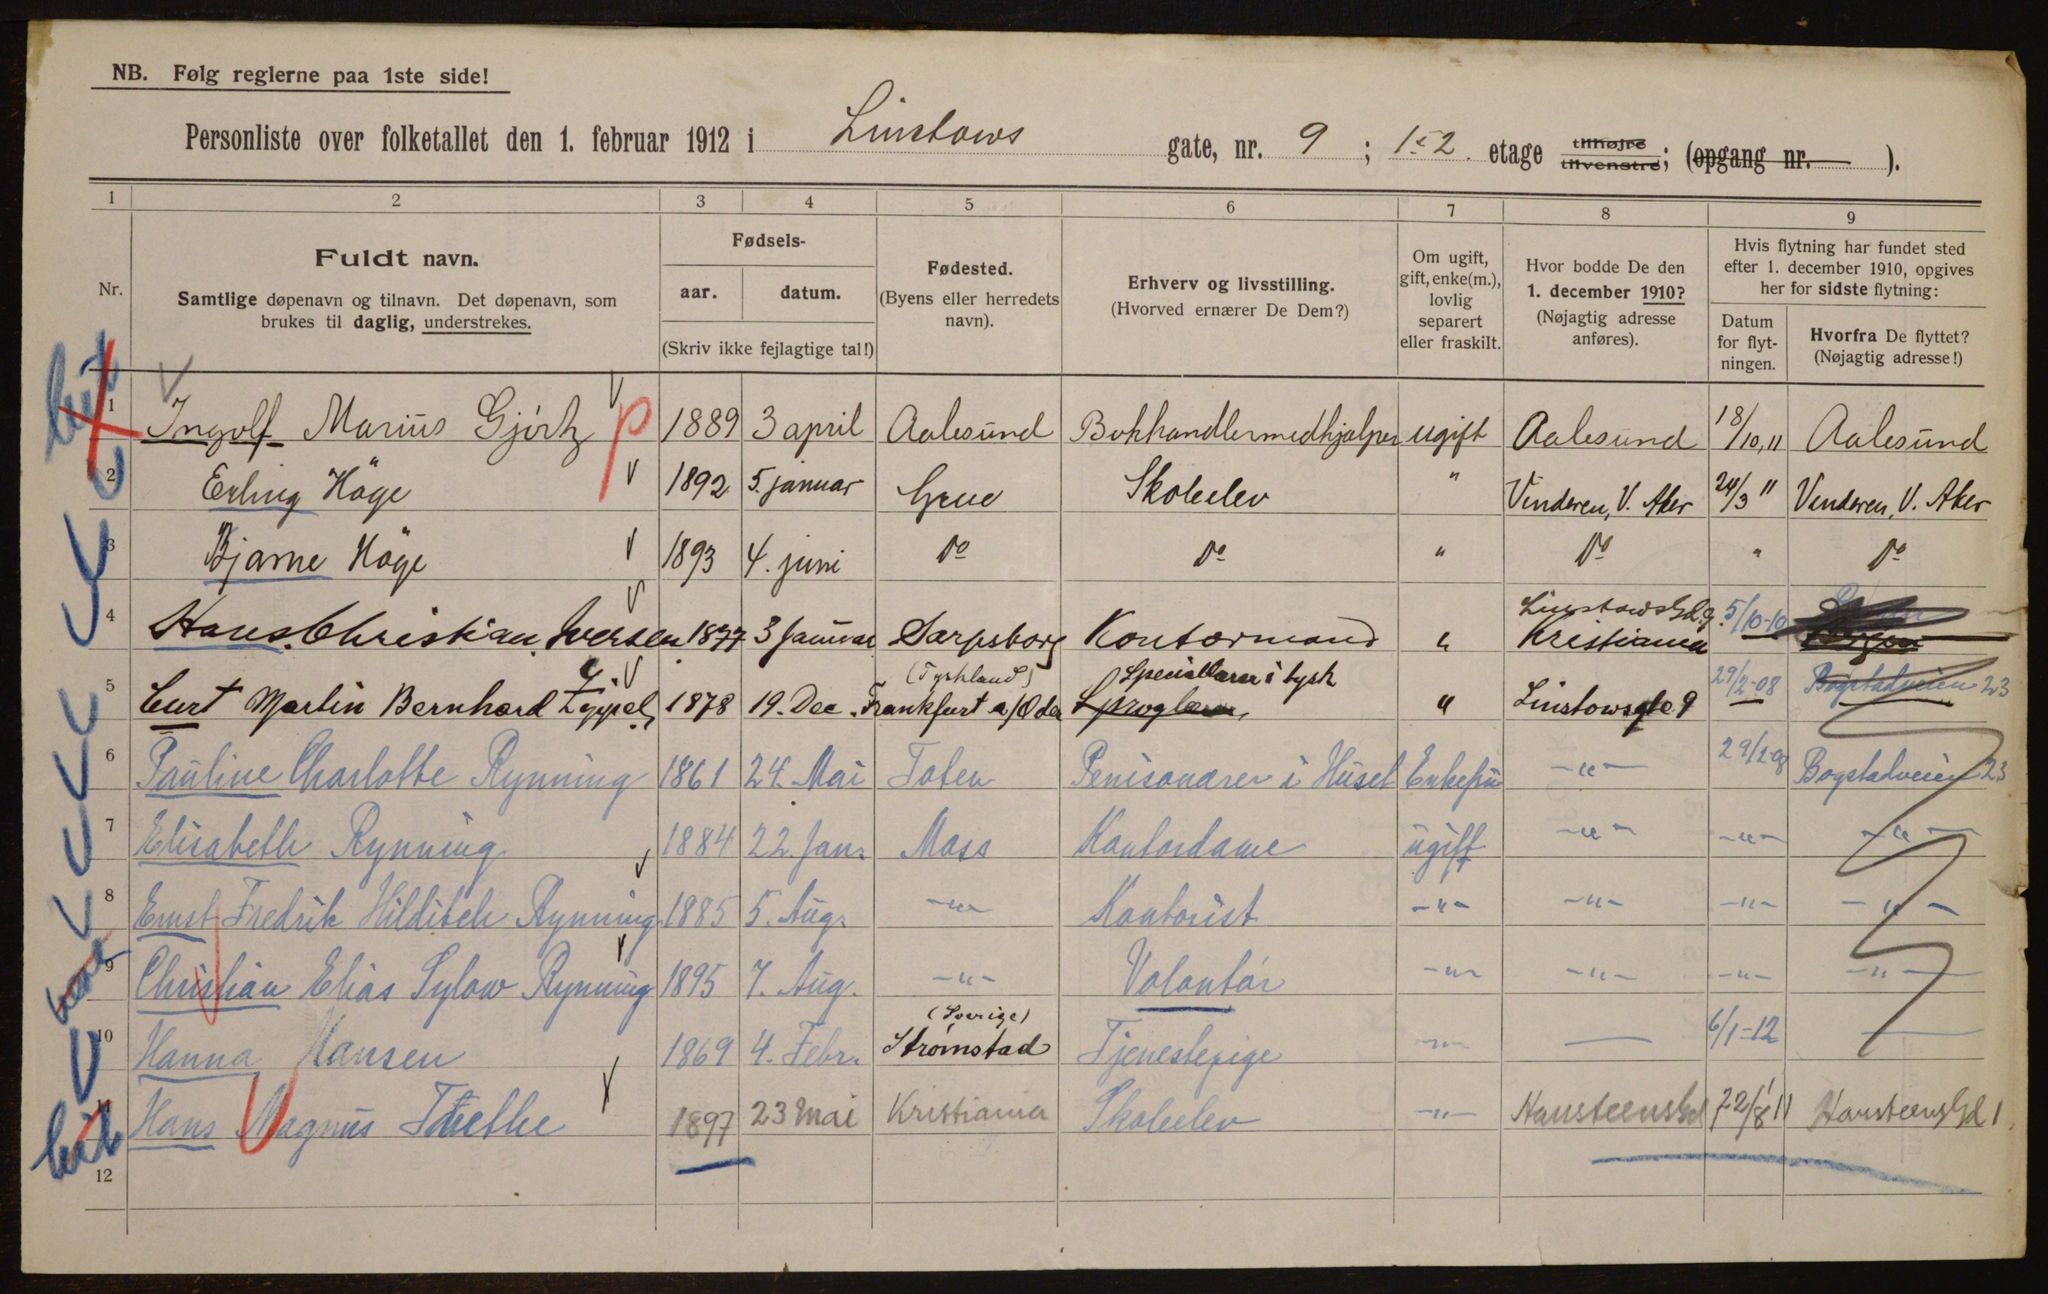 NB. Følg reglerne paa 1ste side!
Personliste over folketallet den 1. februar 1912 i Linstows gate, nr. 9 ; 1 & 2. etage tilhøjre tilvenstre; (opgang nr. ).
1 2 3 4 5 6 7 8 9
Nr. Fuldt navn. Samtlige døpenavn og tilnavn. Det døpenavn, som brukes til daglig, understrekes.
Fødsels- aar. datum. (Skriv ikke fejlagtige tal!)
Fødested. (Byens eller herredets navn).
Erhverv og livsstilling. (Hvorved ernærer De Dem?)
Om ugift, gift, enke(m.), lovlig separert eller fraskilt.
Hvor bodde De den 1. december 1910? (Nøjagtig adresse anføres).
Hvis flytning har fundet sted efter 1. december 1910, opgives her for sidste flytning:
Datum for flyt-ningen. Hvorfra De flyttet? (Nøjagtig adresse!)
1 Ingolf Marius Gjörtz 1889 3 april Aalesund Bokhandlermedhjælper ugift Aalesund 18/10,11 Aalesund
2 Erling Höge 1892 5. januar Grue Skoleelev " Vinderen, V. Aker 24/3 " Vinderen, V. Aker
3 Bjarne Höge 1893 4. juni Do Do " Do " Do
4 Hans Christian Iversen 1877 3 Januar Sarpsborg Kontormand " Linstowsgd. 9. Kristiania 5/10-10
5 Curt Martin Bernhard Zippel 1878 19. Dec. (Tyskland) Frankfurt a/Oder Speciallærer i tysk Sproglærer, " Linstowsgte 9 29/2-08 Bogstadveien 23
6 Pauline Charlotte Rynning 1861 24. Mai Toten Penisonærer i Huset Enkefru -"- 29/2-08 Bogstadveien 23
7 Elisabeth Rynning 1884 22. Jan. Moss Kontordame ugift -"- -"- -"-
8 Ernst Fredrik Hilditch Rynning 1885 5. Aug. -"- Kontorist -"- -"- -"- -"-
9 Christian Elias Sylow Rynning 1895 7. Aug. -"- Volontör -"- -"- -"- -"-
10 Hanna Hansen 1869 4. Febr. (Sverige) Strömstad Tjenestepige -"- — 6/1-12 —
11 Hans Magnus 1897 23 Mai Kristiania Skoleelev -"- Hansteensgd 22/8 11 Hansteensgd 1.
12